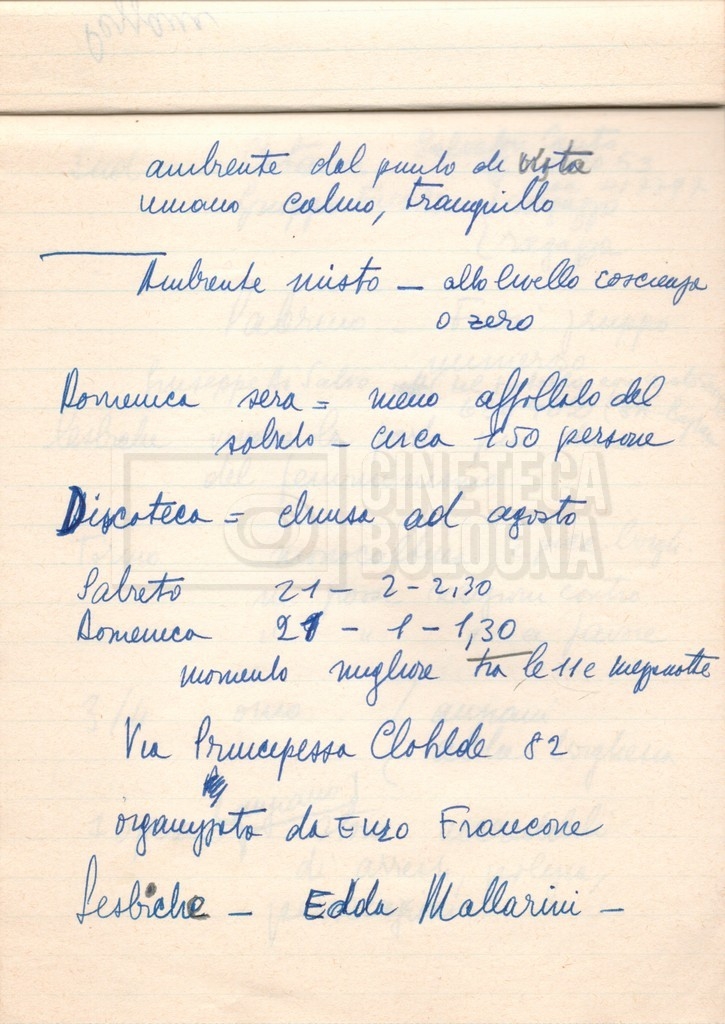 ambiente dal punto di vista
umano calmo, tranquillo
Ambiente misto – a livello coscienza
o zero
Domenica sera = meno affollato del
sabato – circa 150 persone
CINETECA
BOLOGNA
Discoteca = chiusa ad agosto
Sabato 21 – 2 – 2,30
Domenica 21 – 1 – 1,30
momento migliore tra le 11 e mezzanotte
Via Principessa Clotilde 82
organizzata da Enzo Francone
Lesbiche – Edda Mallarini –